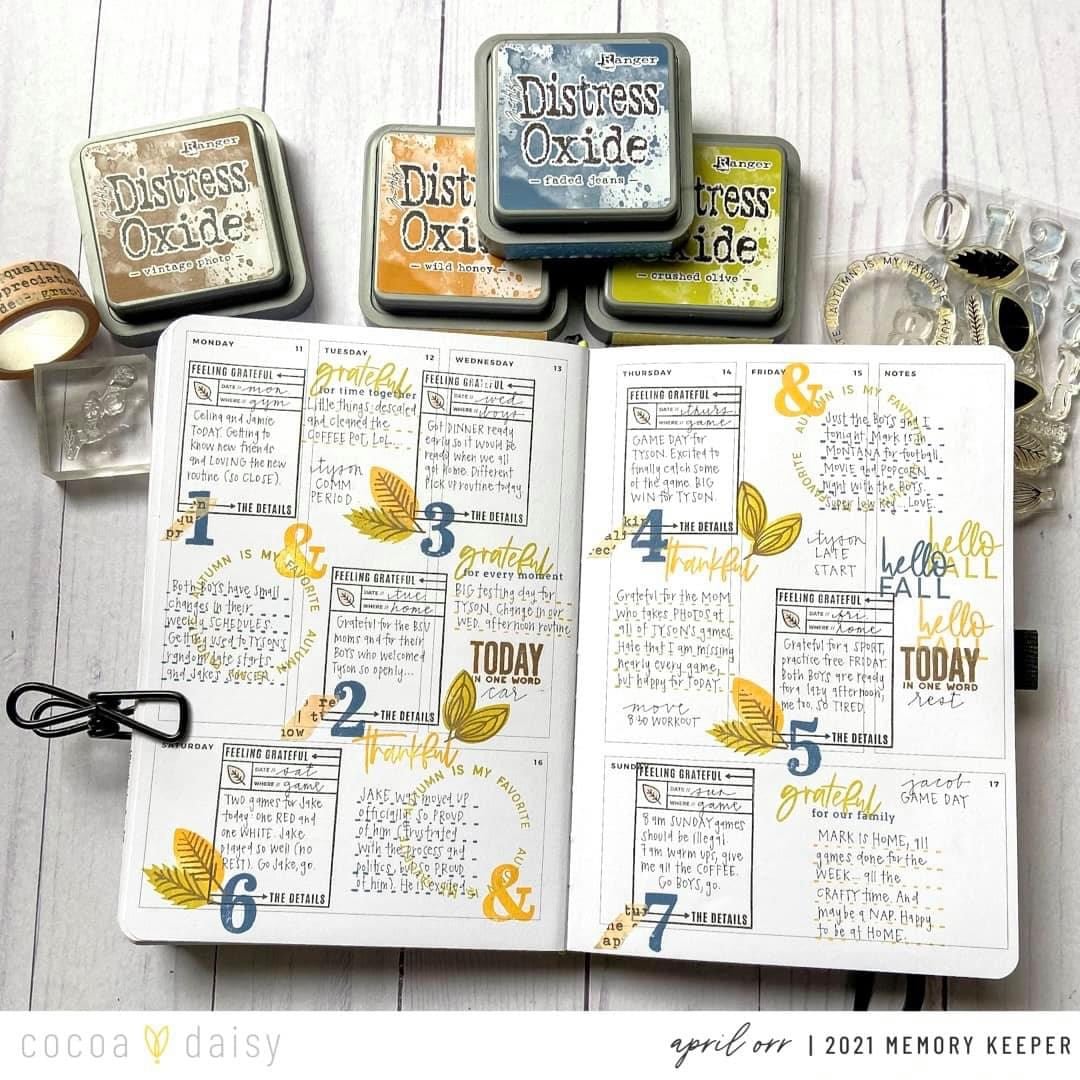 Ranger
Distress
Oxide
— faded jeans —
Ranger
Distress
Oxide
— vintage photo —
Dist
Oxi
— wild honey —
Ranger
tress
ide
— crushed olive —
quality
0 1 2
AUTUMN IS MY FAVORITE
MONDAY 11
FEELING GRATEFUL
DATE // mon
WHERE // gym
Celina and Jamie
TODAY. Getting to
know new friends
and LOVING the new
routine (so CLOSE).
THE DETAILS
1
&
AUTUMN IS MY FAVORITE AUTUMN
Both BOYS have small
changes in their
weekly SCHEDULES.
Getting used to TYSON'S
random late starts
and Jake's SOCCER.
TUESDAY 12
grateful
for time together
Little things: descaled
and cleaned the
COFFEE POT, LOL...
tyson
COMM.
PERIOD
FEELING GRATEFUL
DATE // tue
WHERE // home
Grateful for the BSV
moms and for their
BOYS who welcomed
Tyson so openly...
THE DETAILS
2
WEDNESDAY 13
FEELING GRATEFUL
DATE // wed
WHERE // boys
Got DINNER ready
early so it would be
ready when we all
got home. Different
Pick up routine today.
THE DETAILS
3
grateful
for every moment
BIG testing day for
TYSON. Change in our
WED. afternoon routine
TODAY
IN ONE WORD
car
THURSDAY 14
FEELING GRATEFUL
DATE // thurs.
WHERE // game
GAME DAY for
TYSON. Excited to
finally catch some
of the game. BIG
WIN for TYSON.
THE DETAILS
4
thankful
Grateful for the MOM
who takes PHOTOS at
all of TYSON'S games.
Hate that I am missing
nearly every game,
but happy for TODAY.
move
8:30 WORKOUT
FRIDAY 15
&
AUTUMN IS MY FAVORITE
Just the BOYS and I
tonight. Mark is in
MONTANA for football.
MOVIE and POPCORN
night with the BOYS.
Super low key... LOVE.
tyson
LATE
START
FEELING GRATEFUL
DATE // fri
WHERE // home
Grateful for a SPORT,
practice free FRIDAY.
Both BOYS are ready
for a lazy afternoon,
me too. SO TIRED.
THE DETAILS
5
NOTES
hello
FALL
hello
FALL
hello
FALL
TODAY
IN ONE WORD
rest
SATURDAY 16
FEELING GRATEFUL
DATE // sat
WHERE // game
TWO games for Jake
today: one RED and
one WHITE. Jake
played so well (no
REST). Go Jake, go.
THE DETAILS
6
thankful
AUTUMN IS MY FAVORITE
JAKE was moved up
officially. So PROUD
of him. Frustrated
with the process and
politics, but so PROUD
of him). He is excited.
&
SUNDAY 17
FEELING GRATEFUL
DATE // sun
WHERE // game
8 am SUNDAY games
should be illegal.
7 am warm ups, give
me all the COFFEE.
Go BOYS, go.
THE DETAILS
7
grateful
for our family
MARK is HOME, all
games done for the
WEEK... all the
CRAFTY time. And
maybe a NAP. Happy
to be at HOME.
jacob
GAME DAY
cocoa daisy
april orr | 2021 MEMORY KEEPER